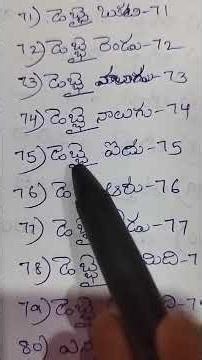 71) డెబ్బై ఒకటి-71
72) డెబ్బై రెండు-72
73) డెబ్బై మూడు-73
74) డెబ్బై నాలుగు-74
75) డెబ్బై ఐదు-75
76) డె ఆరు-76
77) డె డు-77
78) డెబ్బై మిది-7
79) డెబ్బై
80) ఎన